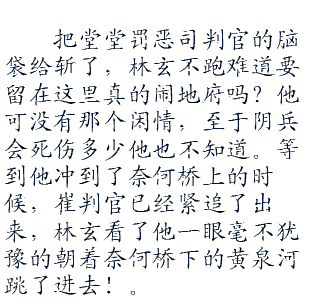 把堂堂罚恶司判官的脑
袋给斩了，林玄不跑难道要
留在这里真的闹地府吗？他
可没有那个闲情，至于阴兵
会死伤多少他也不知道。等
到他冲到了奈何桥上的时
候，崔判官已经紧追了出
来，林玄看了他一眼毫不犹
豫的朝着奈何桥下的黄泉河
跳了进去！。